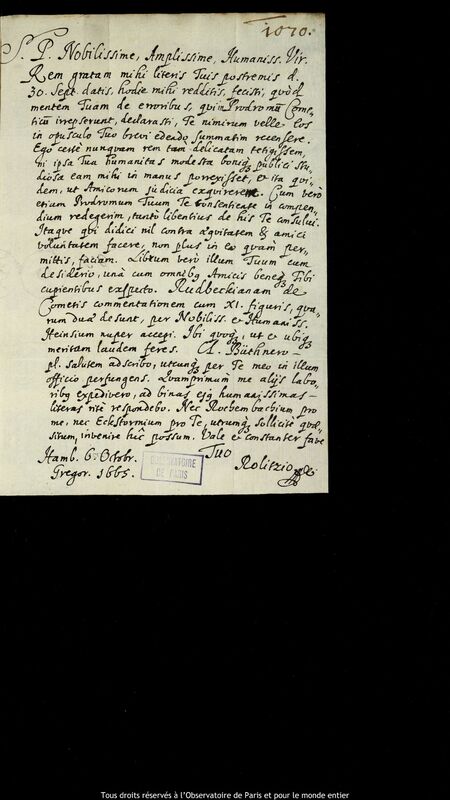 1070.
S. P. Nobilissime, Amplissime, Humaniss. Vir.
Rem gratam mihi literis Tuis postremis d.
30. Sept. datis, hodie mihi redditis, fecisti, quòd
mentem Tuam de erroribus, qui in Prodromũ Come-
ticũ irrepserunt, declarasti, Te nimirum velle eos
in opusculo Tuo brevi edendo summatim recensere.
Ego certè nunquam rem tam delicatam tetigissem,
ni ipsa Tua humanitas modesta boniq; publici stu-
diosa eam mihi in manus porrexisset, & ita qui-
dem, ut Amicorum judicia exquirerem. Cum verò
etiam Prodromum Tuum Te consentiente in compen-
dium redegerim, tantò libentius de his Te consului.
Itaque qui didici nil contra æquitatem & amici
voluntatem facere, non plus in eo quàm per-
mittis, faciam. Librum verò illum Tuum cum
desiderio, unà cum omnibq Amicis beneq; Tibi
cupientibus exspecto. Rudbeckianam de
Cometis commentationem cum XI. figuris, qua-
rum duæ desunt, per Nobiliss. & Humaniss.
Heinsium nuper accepi. Ibi quoq;, ut & ubiq;
meritam laudem feres. Cl. Büthnero
pl. salutem adscribo, utcunq; per Te meo in illum
officio perfungens. Quamprimum me alijs labo-
ribq expedivero, ad binas ejq humanissimas
literas ritè respondebo. Nec Roebembachium pro
me, nec Eckstormium pro Te, utrumq; sollicitè quæ-
situm, invenire hîc possum. Vale & constanter fave
Tuo
Hamb. 6. Octobr.
Gregor. 1665.
Rolitzio
OBSERVATOIRE
DE PARIS
Tous droits réservés à l'Observatoire de Paris et pour le monde entier